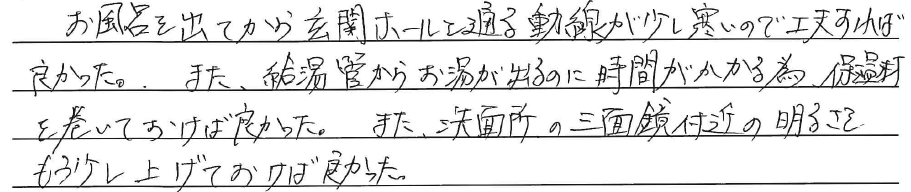 お風呂を出てから玄関ホールを通る動線が少し寒いので工夫すれば
良かった。また、給湯管からお湯が出るのに時間がかかる為、保温材
を巻いておけば良かった。また、洗面所の三面鏡付近の明るさを
もう少し上げておけば良かった。